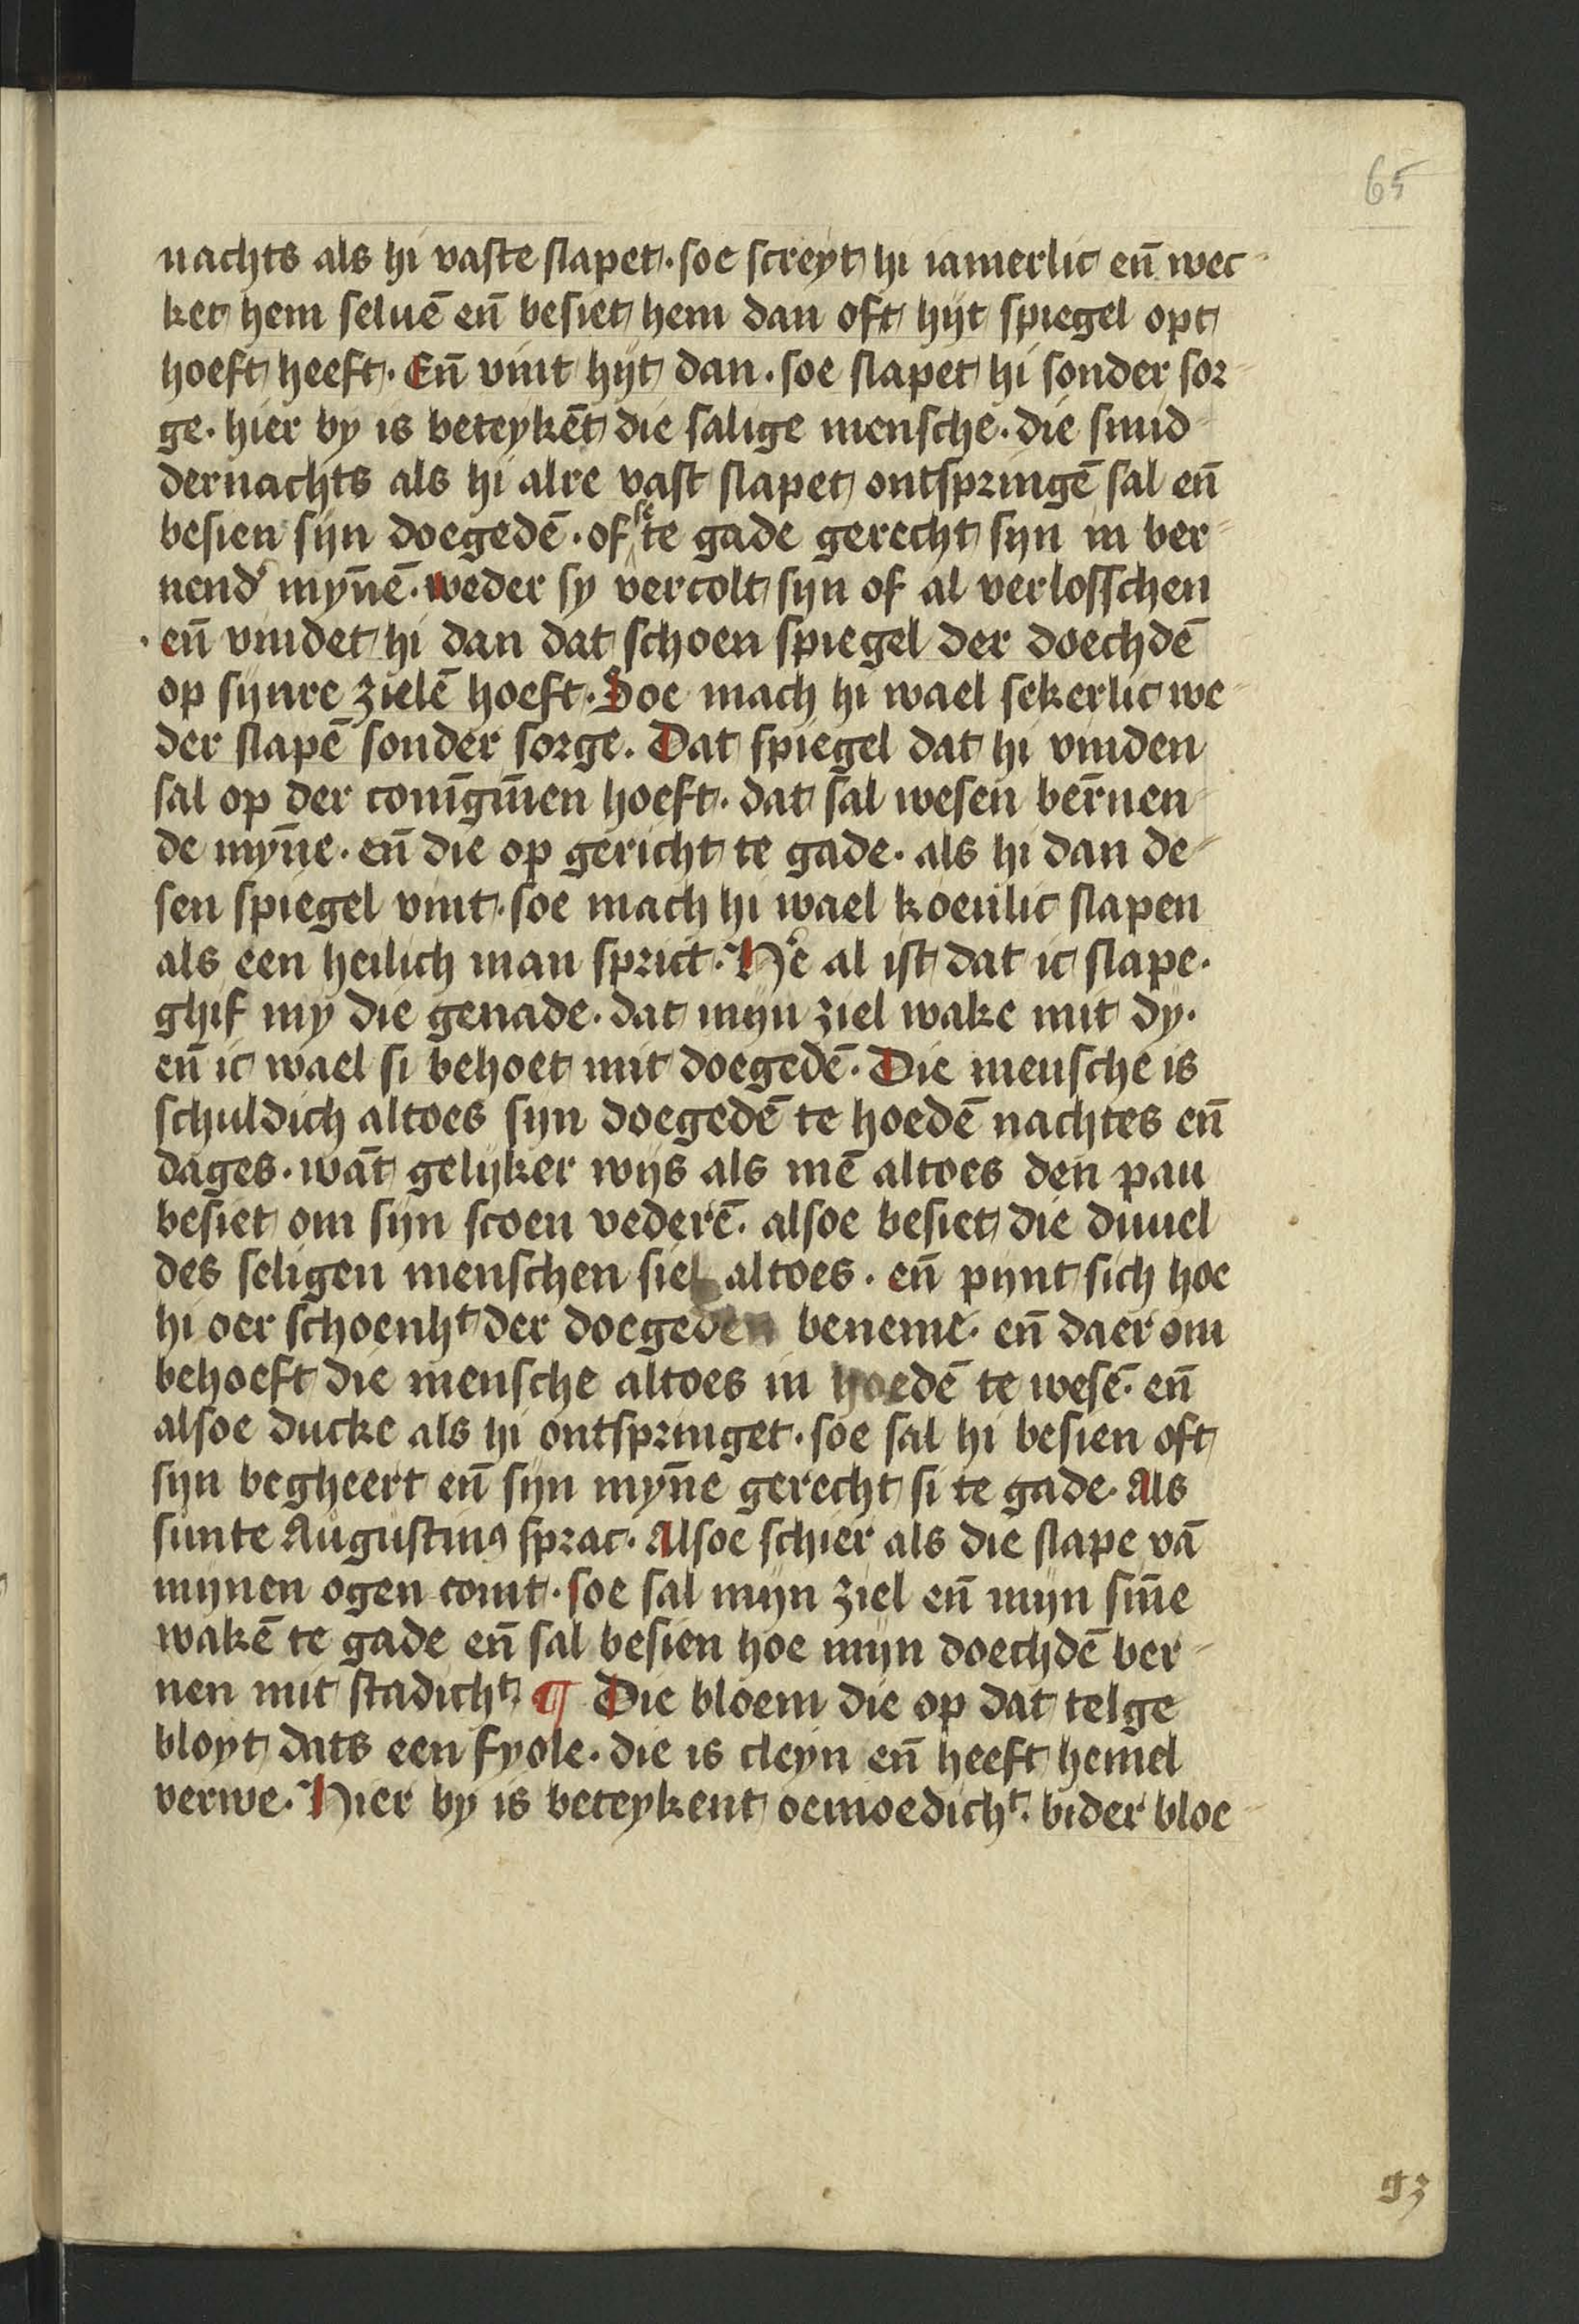 65
nachts als hi vaste slapet · soe screyt hi iamerlic en̄ wec
ket hem seluē en̄ besiet hem dan oft hijt spiegel opt
hoeft heeft · En̄ vint hijt dan · soe slapet hi sonder sor
ge · hier by is beteykēt die salige mensche · die smid
dernachts als hi alre vast slapet ontspringē sal en̄
besien sijn doegedē · of se te gade gerecht sijn in ber
nend' myn̄ē · weder sy vercolt sijn of al verlosschen
· en̄ vindet hi dan dat schoen spiegel der doechdē
op sijnre zielē hoeft · Soe mach hi wael sekerlic we
der slapē sonder sorge · Dat spiegel dat hi vinden
sal op der conīgīnen hoeft · dat sal wesen ber̄nen
de myn̄e · en̄ die op gericht te gade · als hi dan de
sen spiegel vint · soe mach hi wael koenlic slapen
als een heilich man sprict · H'e al ist dat ic slape ·
ghif my die genade · dat mijn ziel wake mit dy ·
en̄ ic wael si behoet mit doegedē · Die mensche is
schuldich altoes sijn doegedē te hoedē nachtes en̄
dages · wāt gelijker wijs als mē altoes den pau
besiet om sijn scoen vederē · alsoe besiet die duuel
des seligen menschen siel altoes · en̄ pijnt sich hoe
hi oer schoenht der doegeden beneme · en̄ daer om
behoeft die mensche altoes in hoedē te wesē · en̄
alsoe ducke als hi ontspringet · soe sal hi besien oft
sijn begheert en̄ sijn myn̄e gerecht si te gade · Als
sunte Augustinꝰ sprac · Alsoe schier als die slape vā
mijnen ogen comt · soe sal mijn ziel en̄ mijn sin̄e
wakē te gade en̄ sal besien hoe mijn doechdē ber
nen mit stadicht · ¶ Die bloem die op dat telge
bloyt dats een fyole · die is cleyn en̄ heeft hemel
verwe · Hier by is beteykent oemoedicht · bider bloe